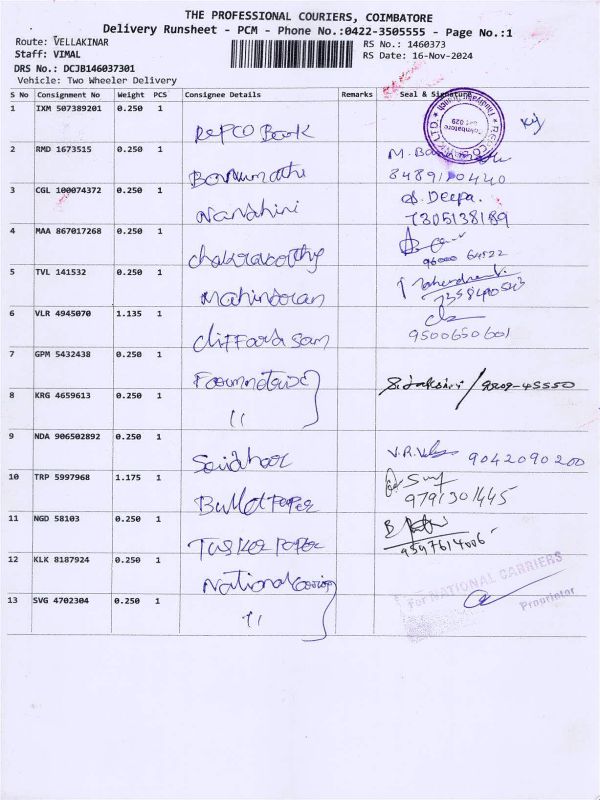 THE PROFESSIONAL COURIERS, COIMBATORE
Delivery Runsheet - PCM - Phone No.:0422-3505555 - Page No.:1
Route: VELLAKINAR
RS No.: 1460373
Staff: VIMAL
RS Date: 16-Nov-2024
DRS No.: DCJB146037301
Vehicle: Two Wheeler Delivery
S No Consignment No Weight PCS Consignee Details Remarks Seal & Signature
1 IXM 507389201 0.250 1
REPCO Bank
2 RMD 1673515 0.250 1
M.
8489110440
3 CGL 100074372 0.250 1
Nandhini
S. Deepa.
7305138189
4 MAA 867017268 0.250 1
Chakravorthy
96000 64522
5 TVL 141532 0.250 1
Mahindoran
6 VLR 4945070 1.135 1
Cliffard Sam
9500650601
7 GPM 5432438 0.250 1
8 KRG 4659613 0.250 1
"
9 NDA 906502892 0.250 1
V.R. 9042090200
10 TRP 5997968 1.175 1
Build Paper
9791301445
11 NGD 58103 0.250 1
Tusker Paper
12 KLK 8187924 0.250 1
National Carrier
For NATIONAL CARRIERS
13 SVG 4702304 0.250 1
"
Proprietor